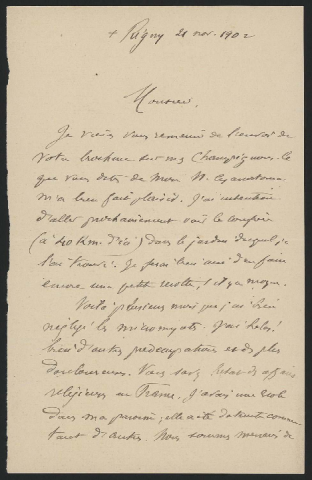 + Rigny 21 nov. 1902
Monsieur,
Je viens vous remercier de l'envoi de
votre brochure sur mes Champignons. Ce
que vous dites de mon N.
m'a bien fait plaisir. J'ai intention
d'aller prochainement voir le
(à 40 Km. d'ici) dans le jardin duquel je
l'ai trouvé. Je serai bien aise d'en faire
encore une petite récolte, s'il y a moyen.
Voilà plusieurs mois que j'ai bien
négligé les micromycètes. J'ai hélas!
bien d'autres préoccupations et de plus
douloureuses. Vous savez l'état des affaires
religieuses en France. J'avais une école
dans ma paroisse; elle a été détruite comme
tant d'autres. Nous sommes menacés de